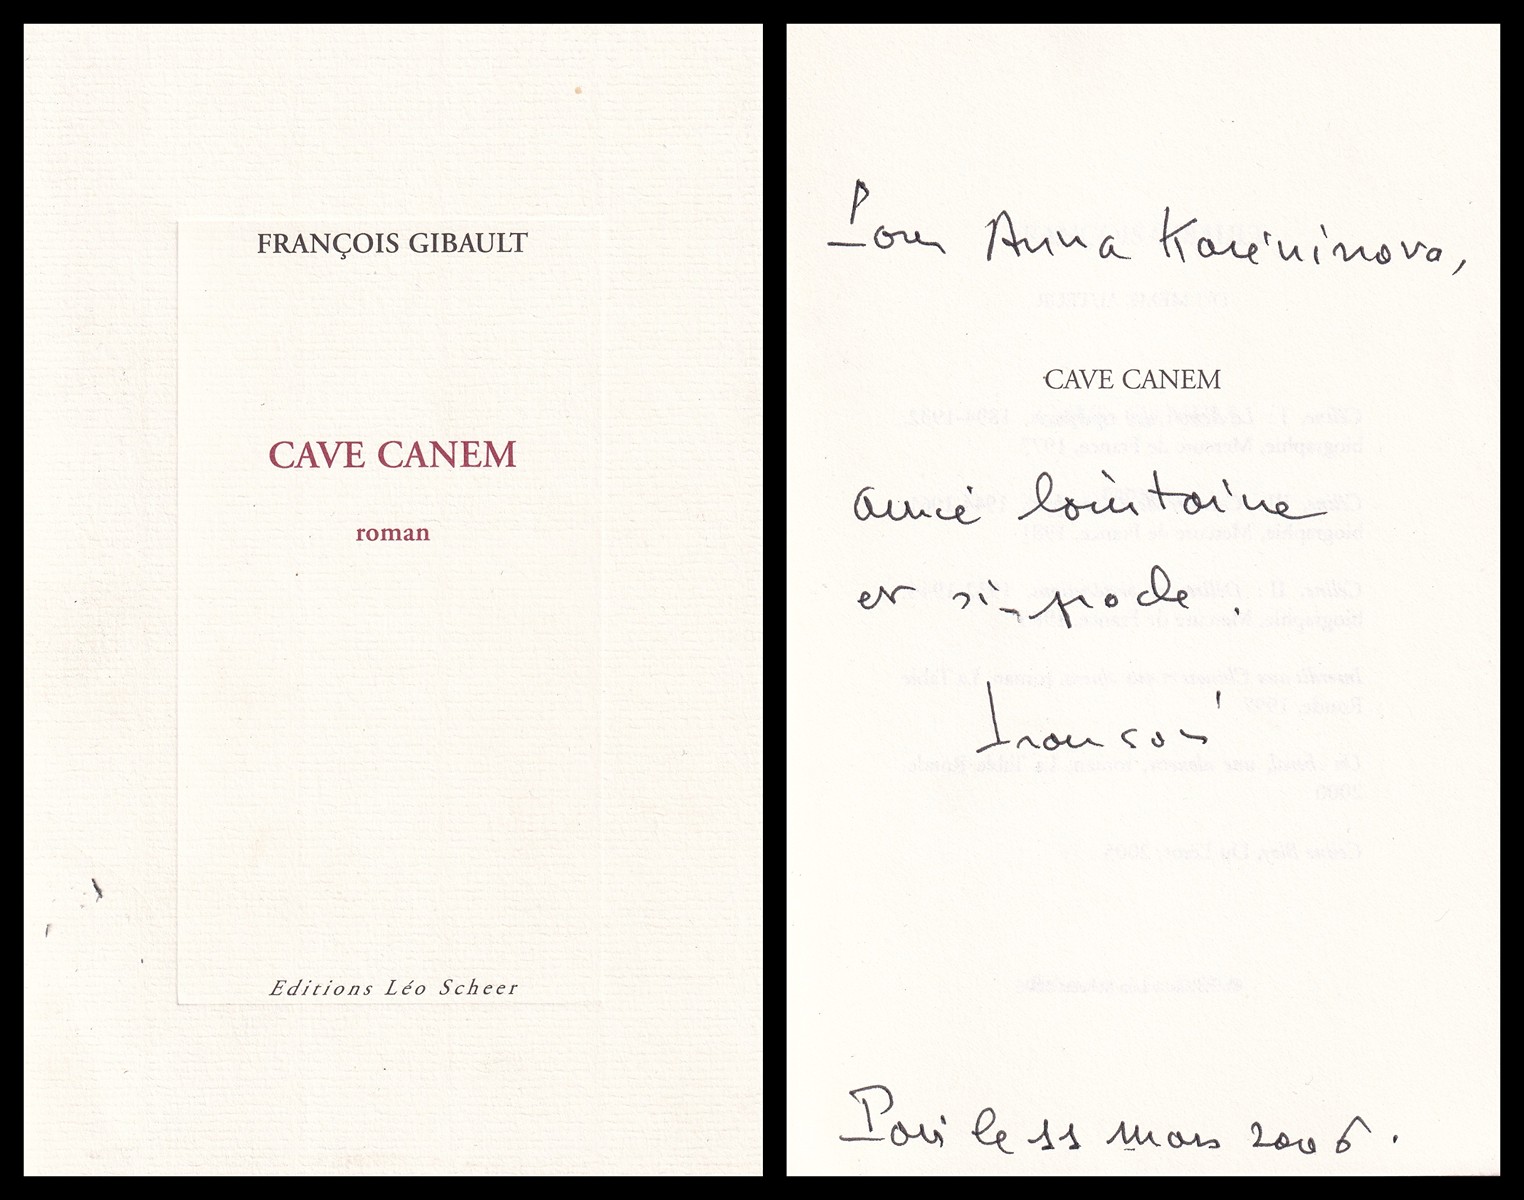 FRANÇOIS GIBAULT
CAVE CANEM
roman
Editions Léo Scheer
Pour Anna Kareninova,
CAVE CANEM
amie lointaine
et si proche.
François
Paris le 11 mars 2006.